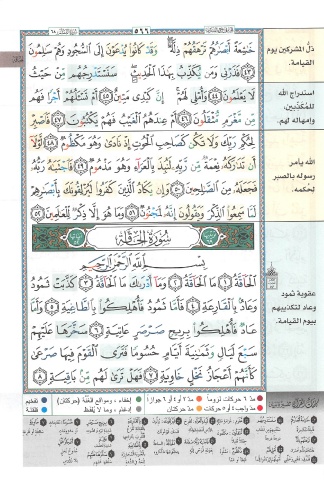 ٥٦٦
خَٰشِعَةً أَبْصَٰرُهُمْ تَرْهَقُهُمْ ذِلَّةٌ ۖ وَقَدْ كَانُوا۟ يُدْعَوْنَ إِلَى ٱلسُّجُودِ وَهُمْ سَٰلِمُونَ
﴿٤٣﴾ فَذَرْنِى وَمَن يُكَذِّبُ بِهَٰذَا ٱلْحَدِيثِ ۖ سَنَسْتَدْرِجُهُم مِّنْ حَيْثُ
لَا يَعْلَمُونَ ﴿٤٤﴾ وَأُمْلِى لَهُمْ ۚ إِنَّ كَيْدِى مَتِينٌ ﴿٤٥﴾ أَمْ تَسْـَٔلُهُمْ أَجْرًا فَهُم
مِّن مَّغْرَمٍ مُّثْقَلُونَ ﴿٤٦﴾ أَمْ عِندَهُمُ ٱلْغَيْبُ فَهُمْ يَكْتُبُونَ ﴿٤٧﴾ فَٱصْبِرْ
لِحُكْمِ رَبِّكَ وَلَا تَكُن كَصَاحِبِ ٱلْحُوتِ إِذْ نَادَىٰ وَهُوَ مَكْظُومٌ ﴿٤٨﴾ لَّوْلَآ
أَن تَدَٰرَكَهُۥ نِعْمَةٌ مِّن رَّبِّهِۦ لَنُبِذَ بِٱلْعَرَآءِ وَهُوَ مَذْمُومٌ ﴿٤٩﴾ فَٱجْتَبَٰهُ رَبُّهُۥ
فَجَعَلَهُۥ مِنَ ٱلصَّٰلِحِينَ ﴿٥٠﴾ وَإِن يَكَادُ ٱلَّذِينَ كَفَرُوا۟ لَيُزْلِقُونَكَ بِأَبْصَٰرِهِمْ
لَمَّا سَمِعُوا۟ ٱلذِّكْرَ وَيَقُولُونَ إِنَّهُۥ لَمَجْنُونٌ ﴿٥١﴾ وَمَا هُوَ إِلَّا ذِكْرٌ لِّلْعَٰلَمِينَ ﴿٥٢﴾
سُورَةُ الْحَاقَّةِ
بِسْمِ ٱللَّهِ ٱلرَّحْمَٰنِ ٱلرَّحِيمِ
ٱلْحَآقَّةُ ﴿١﴾ مَا ٱلْحَآقَّةُ ﴿٢﴾ وَمَآ أَدْرَىٰكَ مَا ٱلْحَآقَّةُ ﴿٣﴾ كَذَّبَتْ ثَمُودُ
وَعَادٌۢ بِٱلْقَارِعَةِ ﴿٤﴾ فَأَمَّا ثَمُودُ فَأُهْلِكُوا۟ بِٱلطَّاغِيَةِ ﴿٥﴾ وَأَمَّا
عَادٌ فَأُهْلِكُوا۟ بِرِيحٍ صَرْصَرٍ عَاتِيَةٍ ﴿٦﴾ سَخَّرَهَا عَلَيْهِمْ
سَبْعَ لَيَالٍ وَثَمَٰنِيَةَ أَيَّامٍ حُسُومًا فَتَرَى ٱلْقَوْمَ فِيهَا صَرْعَىٰ
كَأَنَّهُمْ أَعْجَازُ نَخْلٍ خَاوِيَةٍ ﴿٧﴾ فَهَلْ تَرَىٰ لَهُم مِّنۢ بَاقِيَةٍ ﴿٨﴾
ذلّ المشركين يوم
القيامة.
استدراج الله
للمكذبين,
وإمهاله لهم.
الله يأمر
رسوله بالصبر
لحكمه.
عقوبة ثمود
وعاد لتكذيبهم
بيوم القيامة.
مدّ ٦ حركات لزوماً مدّ ٢ أو ٤ أو ٦ جوازاً إخفاء، ومواقع الغنّة (حركتان) تفخيم
مدّ واجب ٤ أو ٥ حركات مدّ حركتان إدغام، وما لا يُلفظ قلقلة